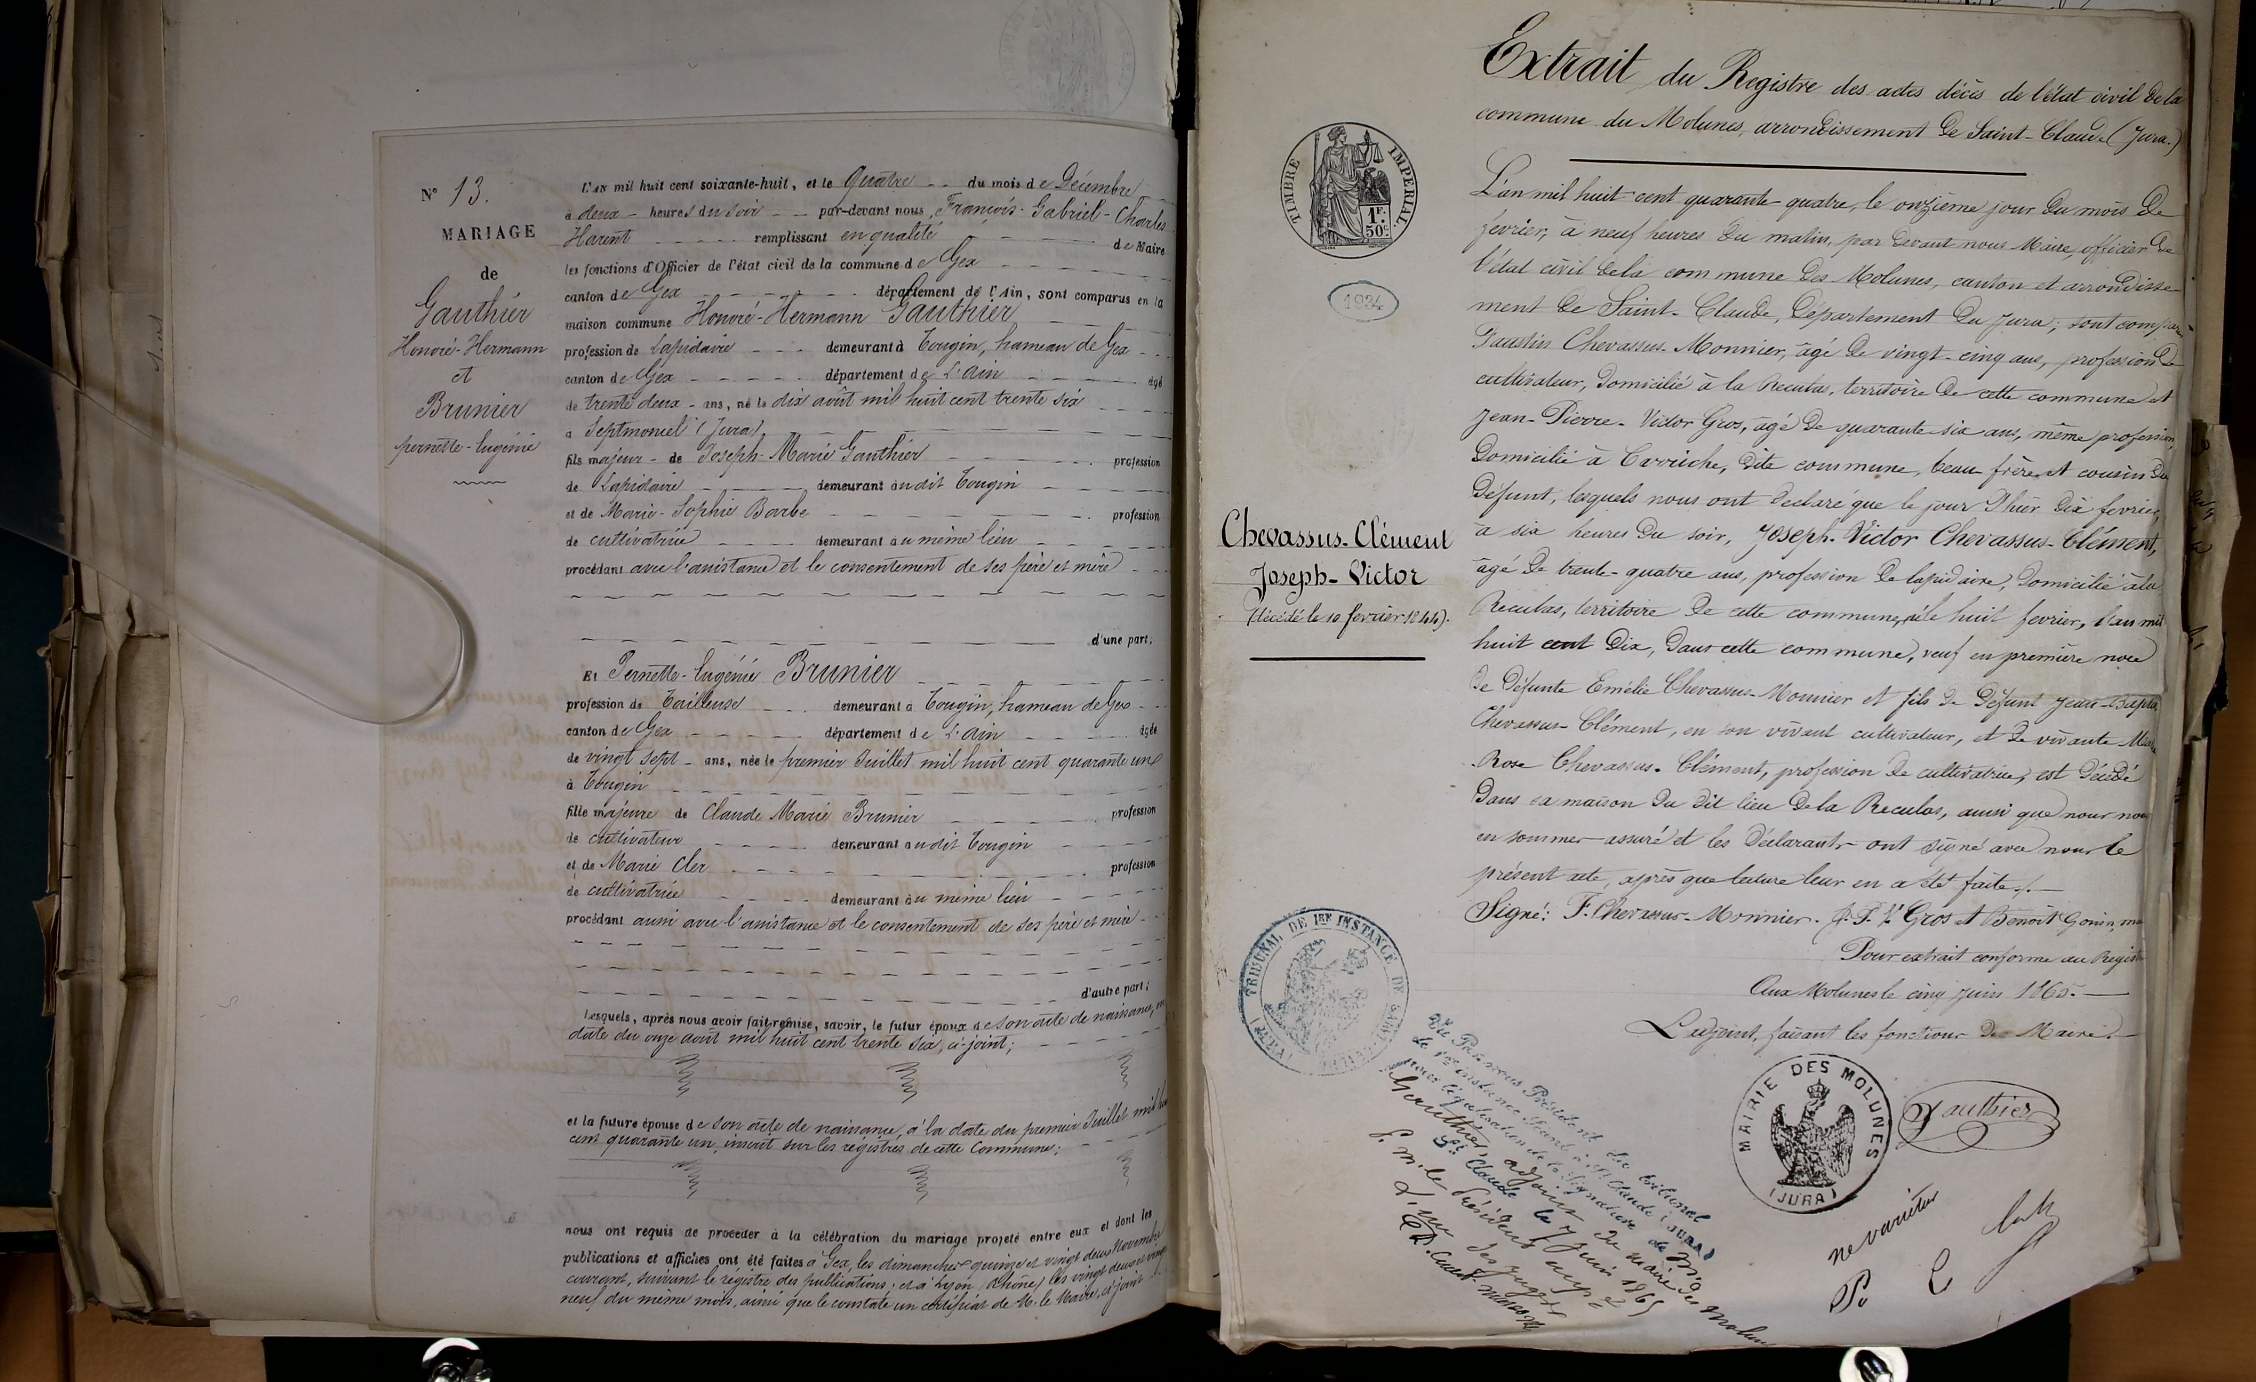 N° 13.
MARIAGE
de
Gauthier
Honoré-Hermann
et
Brunier
pernette-Eugénie
L'an mil huit cent soixante-huit, et le Quatre du mois de Décembre
à deux heures du soir par-devant nous, François-Gabriel-Charles
Harent remplissant en qualité de Maire
les fonctions d'Officier de l'état civil de la commune de Gex
canton de Gex département de l'Ain, sont comparus en la
maison commune Honoré-Hermann Gauthier
profession de Lapidaire demeurant à Tougin, hameau de Gex
canton de Gex département de L'Ain âgé
de trente deux ans, né le dix août mil huit cent trente six
à Septmoncel (Jura)
fils majeur de Joseph-Marie Gauthier profession
de Lapidaire demeurant audit Tougin
et de Marie-Sophie Barbe profession
de cultivatrice demeurant au même lieu
procédant avec l'assistance et le consentement de ses père et mère
d'une part;
Et Pernette-Eugénie Brunier
profession de Tailleuse demeurant à Tougin, hameau de Gex
canton de Gex département de L'Ain âgée
de vingt sept ans, née le premier Juillet mil huit cent quarante un
à Tougin
fille majeure de Claude Marie Brunier profession
de cultivateur demeurant audit Tougin
et de Marie Cler profession
de cultivatrice demeurant au même lieu
procédant aussi avec l'assistance et le consentement de ses père et mère
d'autre part;
Lesquels, après nous avoir fait remise, savoir, le futur époux de son acte de naissance, en
date du onze août mil huit cent trente six, ci-joint;
et la future épouse de son acte de naissance, à la date du premier Juillet mil huit
cent quarante un, inscrit sur les registres de cette Commune;
nous ont requis de procéder à la célébration du mariage projeté entre eux et dont les
publications et affiches ont été faites à Gex, les dimanches quinze et vingt deux Novembre
courant, suivant le registre des publications; et à Lyon (Rhône) les vingt deux et vingt
neuf du même mois, ainsi que le constate un certificat de M. le Maire, ci joint
Extrait du Registre des actes décès de l'état civil de la
commune du Molunes, arrondissement de Saint-Claude (Jura.)
TIMBRE IMPERIAL
1 F. 50 c.
1924
Chevassus-Clément
Joseph-Victor
(décédé le 10 fevrier 1844).
L'an mil huit cent quarante-quatre, le onzième jour du mois de
février, à neuf heures du matin, par devant nous Maire, officier de
l'état civil de la commune des Molunes, canton et arrondisse-
ment de Saint-Claude, département du Jura; sont comparus
Faustin Chevassus-Monnier, âgé de vingt-cinq ans, profession de
cultivateur, domicilié à la Reculas, territoire de cette commune et
Jean-Pierre-Victor Gros, âgé de quarante-six ans, même profession,
domicilié à Carriche, dite commune, beau-frère et cousin du
défunt, lesquels nous ont déclaré que le jour d'hier dix fevrier,
à six heures du soir, Joseph-Victor Chevassus-Clément,
âgé de trente-quatre ans, profession de lapidaire, domicilié à la
Reculas, territoire de cette commune, né le huit fevrier, l'an mil
huit cent dix, dans cette commune, veuf en première noce
de défunte Emélie Chevassus-Monnier et fils de défunt Jean-Bapte
Chevassus-Clément, en son vivant cultivateur, et de vivante Marie
Rose Chevassus-Clément, profession de cultivatrice, est décédé
dans sa maison du dit lieu de la Reculas, ainsi que nous nous
en sommes assuré et les déclarants ont signé avec nous le
présent acte, après que lecture leur en a été faite.
Signé: F. Chevassus-Monnier. J. P. Vr Gros et Benoit Gonin, me
Pour extrait conforme au Registre
Aux Molunes le cinq juin 1865.
L'adjoint, faisant les fonctions de Maire.
Gauthier
MAIRIE DES MOLUNES
(JURA)
TRIBUNAL DE 1RE INSTANCE DE SAINT-CLAUDE (JURA)
Vu Par nous Président du tribunal
de 1re instance séant à St Claude (JURA)
pour légalisation de la Signature de Mr
Gauthier, adjoint du maire des Molunes
St Claude le 7 juin 1865
P. M. le Président empé
L'un des juges
ne varietur